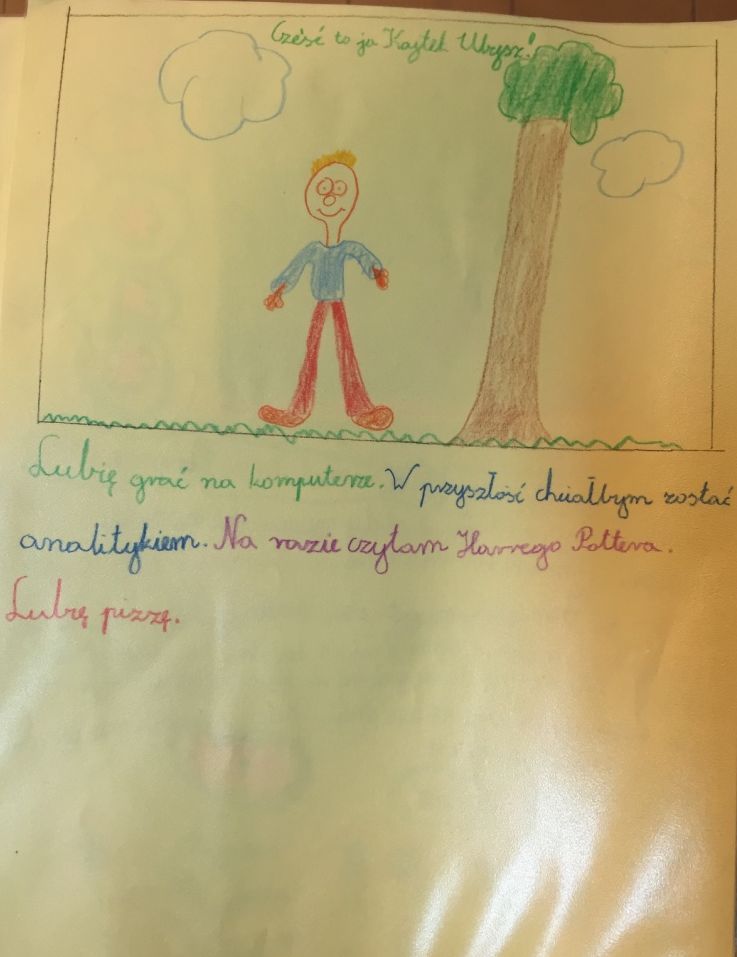 Cześć to ja Kajtek Ubysz!
Lubię grać na komputerze. W przyszłość chciałbym zostać
analitykiem. Na razie czytam Harrego Pottera.
Lubię pizzę.